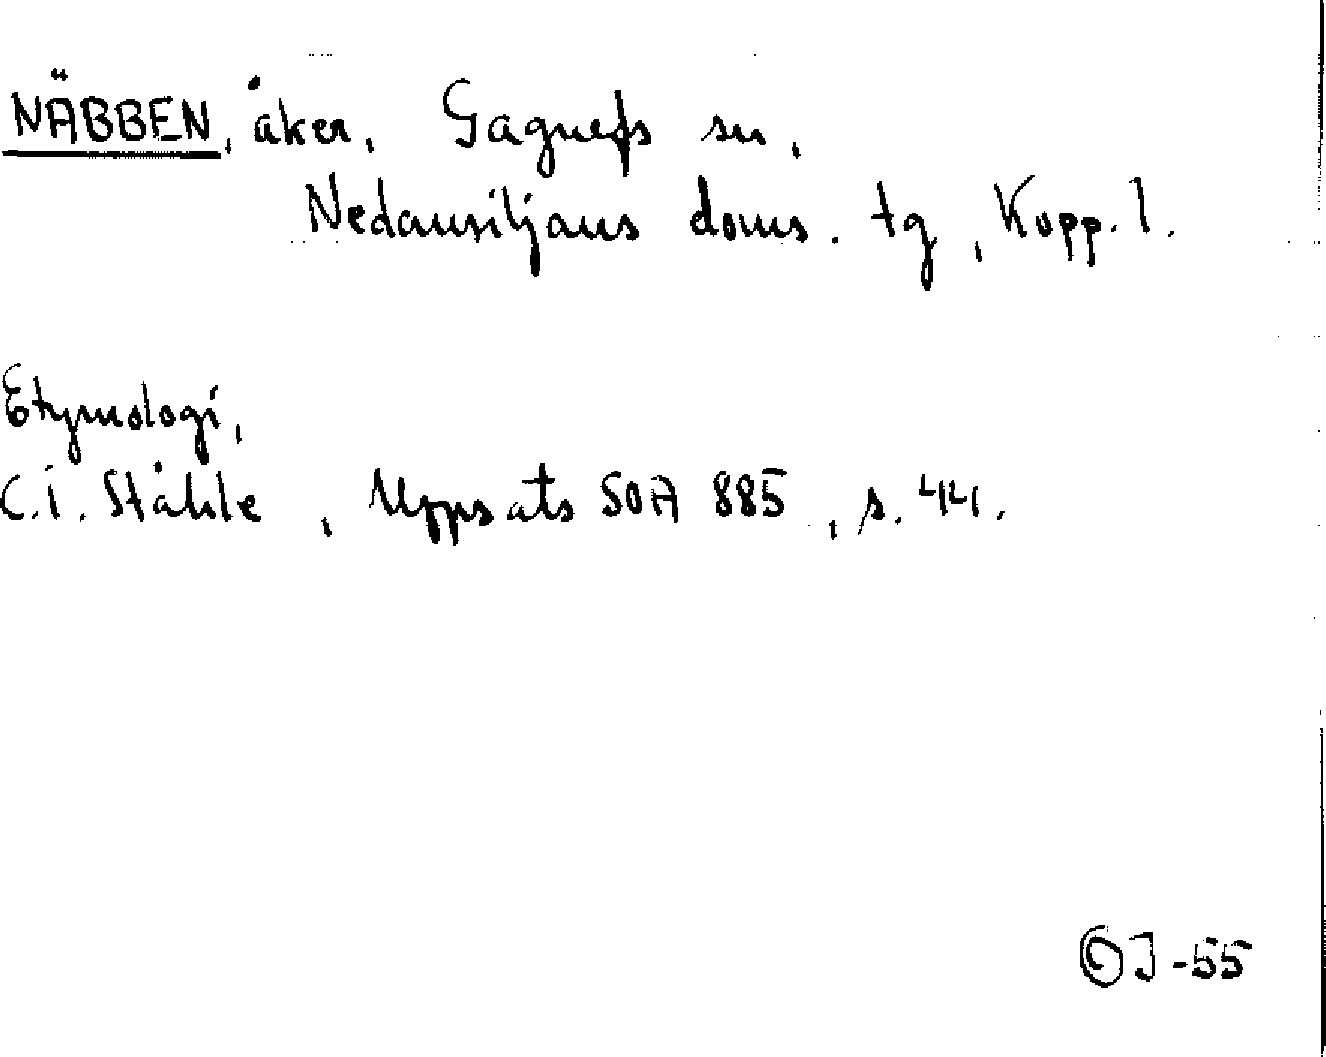 NÄBBEN, åker, Gagnefs sn,
Nedansiljans doms. tg, Kopp. l.
Etymologi,
C.I. Ståhle, Uppsats SOA 885, s. 44.
OJ-55